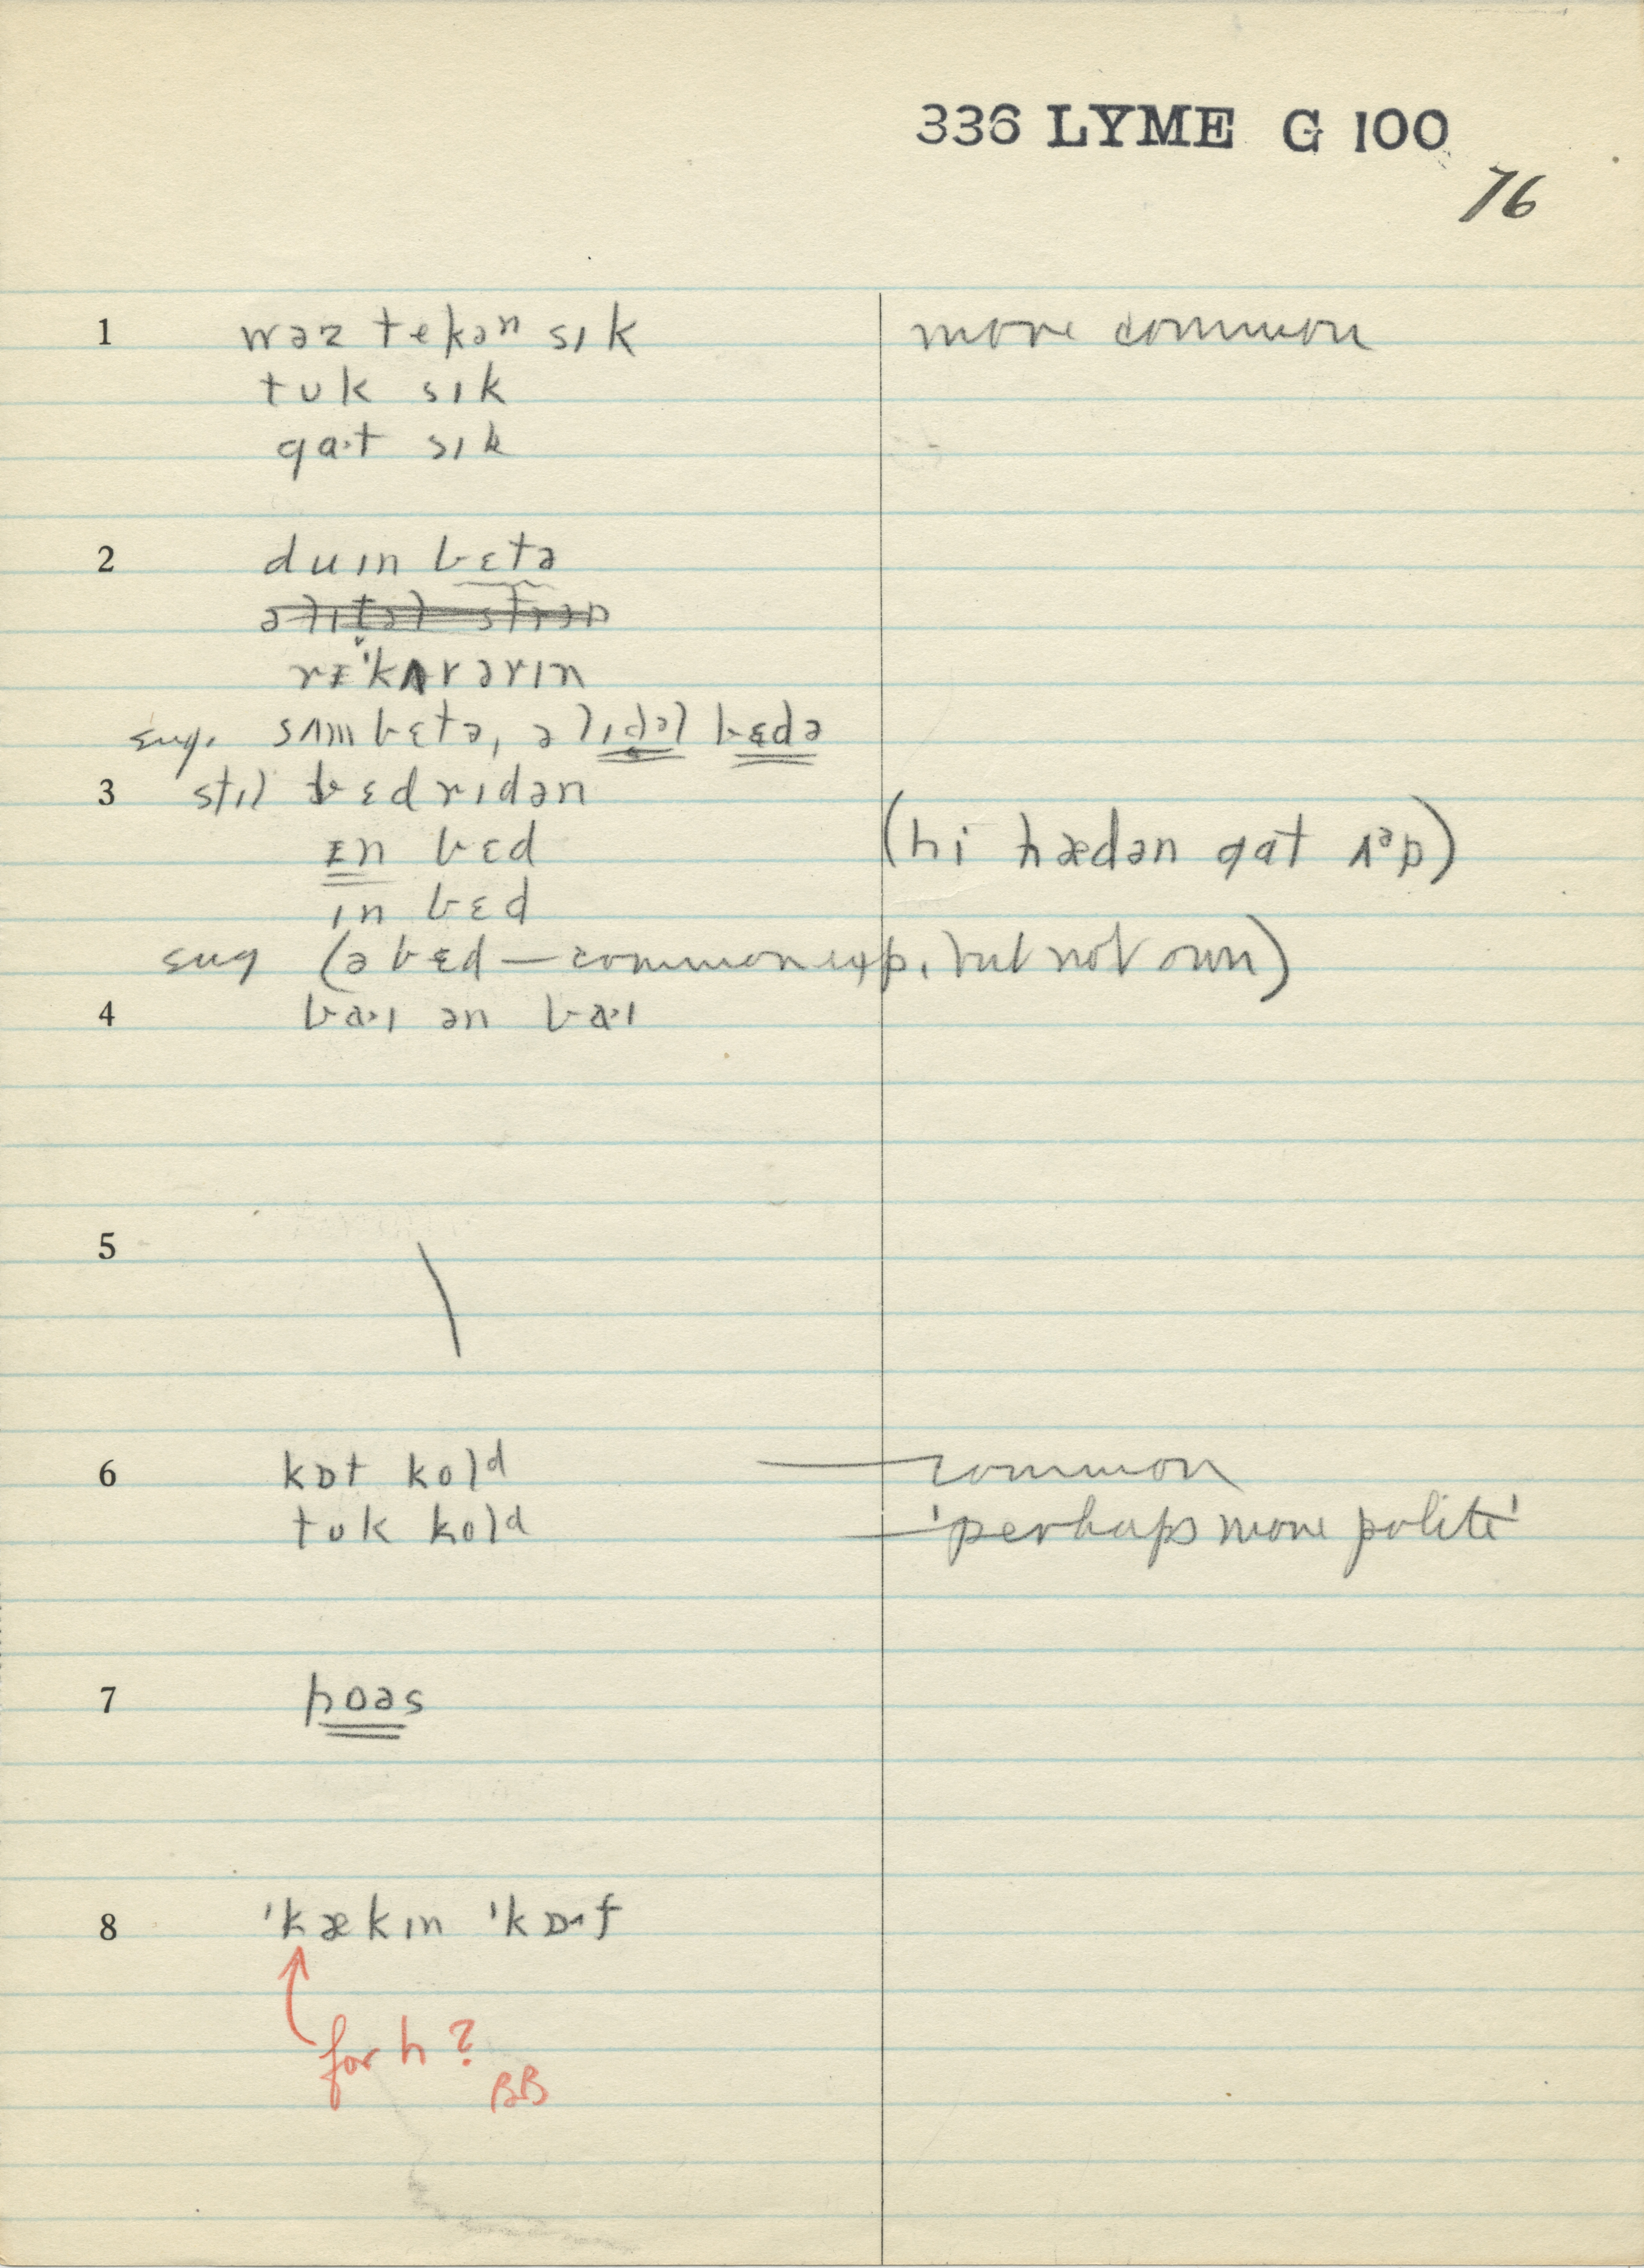 336 LYME G 100
76
1 wəz tekəⁿ sɪk more common
tʊk sɪk
gɑ·t sɪk
2 duɪn bɛtə
rɪ'kʌvərɪn
sug. sʌm bɛtə, ə lɪdəl bɛdə
3 stɪl bɛdrɪdən
ɪn bɛd (hi hædən gɑt ʌᵊp)
ɪn bɛd
sug (əbɛd — common exp. but not own)
4 bɑ·ɪ ən bɑ·ɪ
5
6 kɒt kolᵈ — common
tʊk kolᵈ — 'perhaps more polite'
7 hoəs
8 'kækɪn 'kɒ·f
for h?
BB